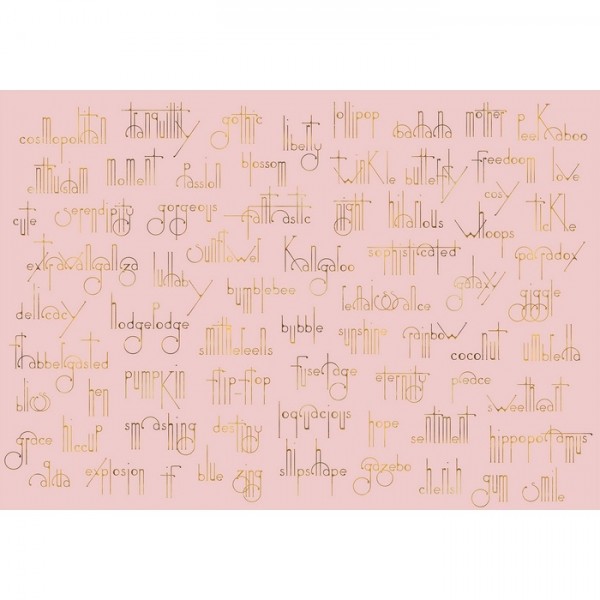 cosmopolitan tranquility gothic liberty lollipop banana mother peekaboo
enthusiasm moment passion blossom twinkle butterfly freedoom love
cute serendipity gorgeous fantastic hilarious cosy whoops tickle
extravaganza lullaby sunflower kangaroo sophisticated galaxy paradox
delicacy hodgepodge bumblebee renaissance giggle
flabbergasted smithereens bubble sunshine rainbow coconut umbrella
bliss hen pumpkin flip-flop fuselage eternity peace sweetheart
grace hiccup smashing destiny loquacious hope sentiment hippopotamus
explosion if blue zing shipshape gazebo cherish gum smile